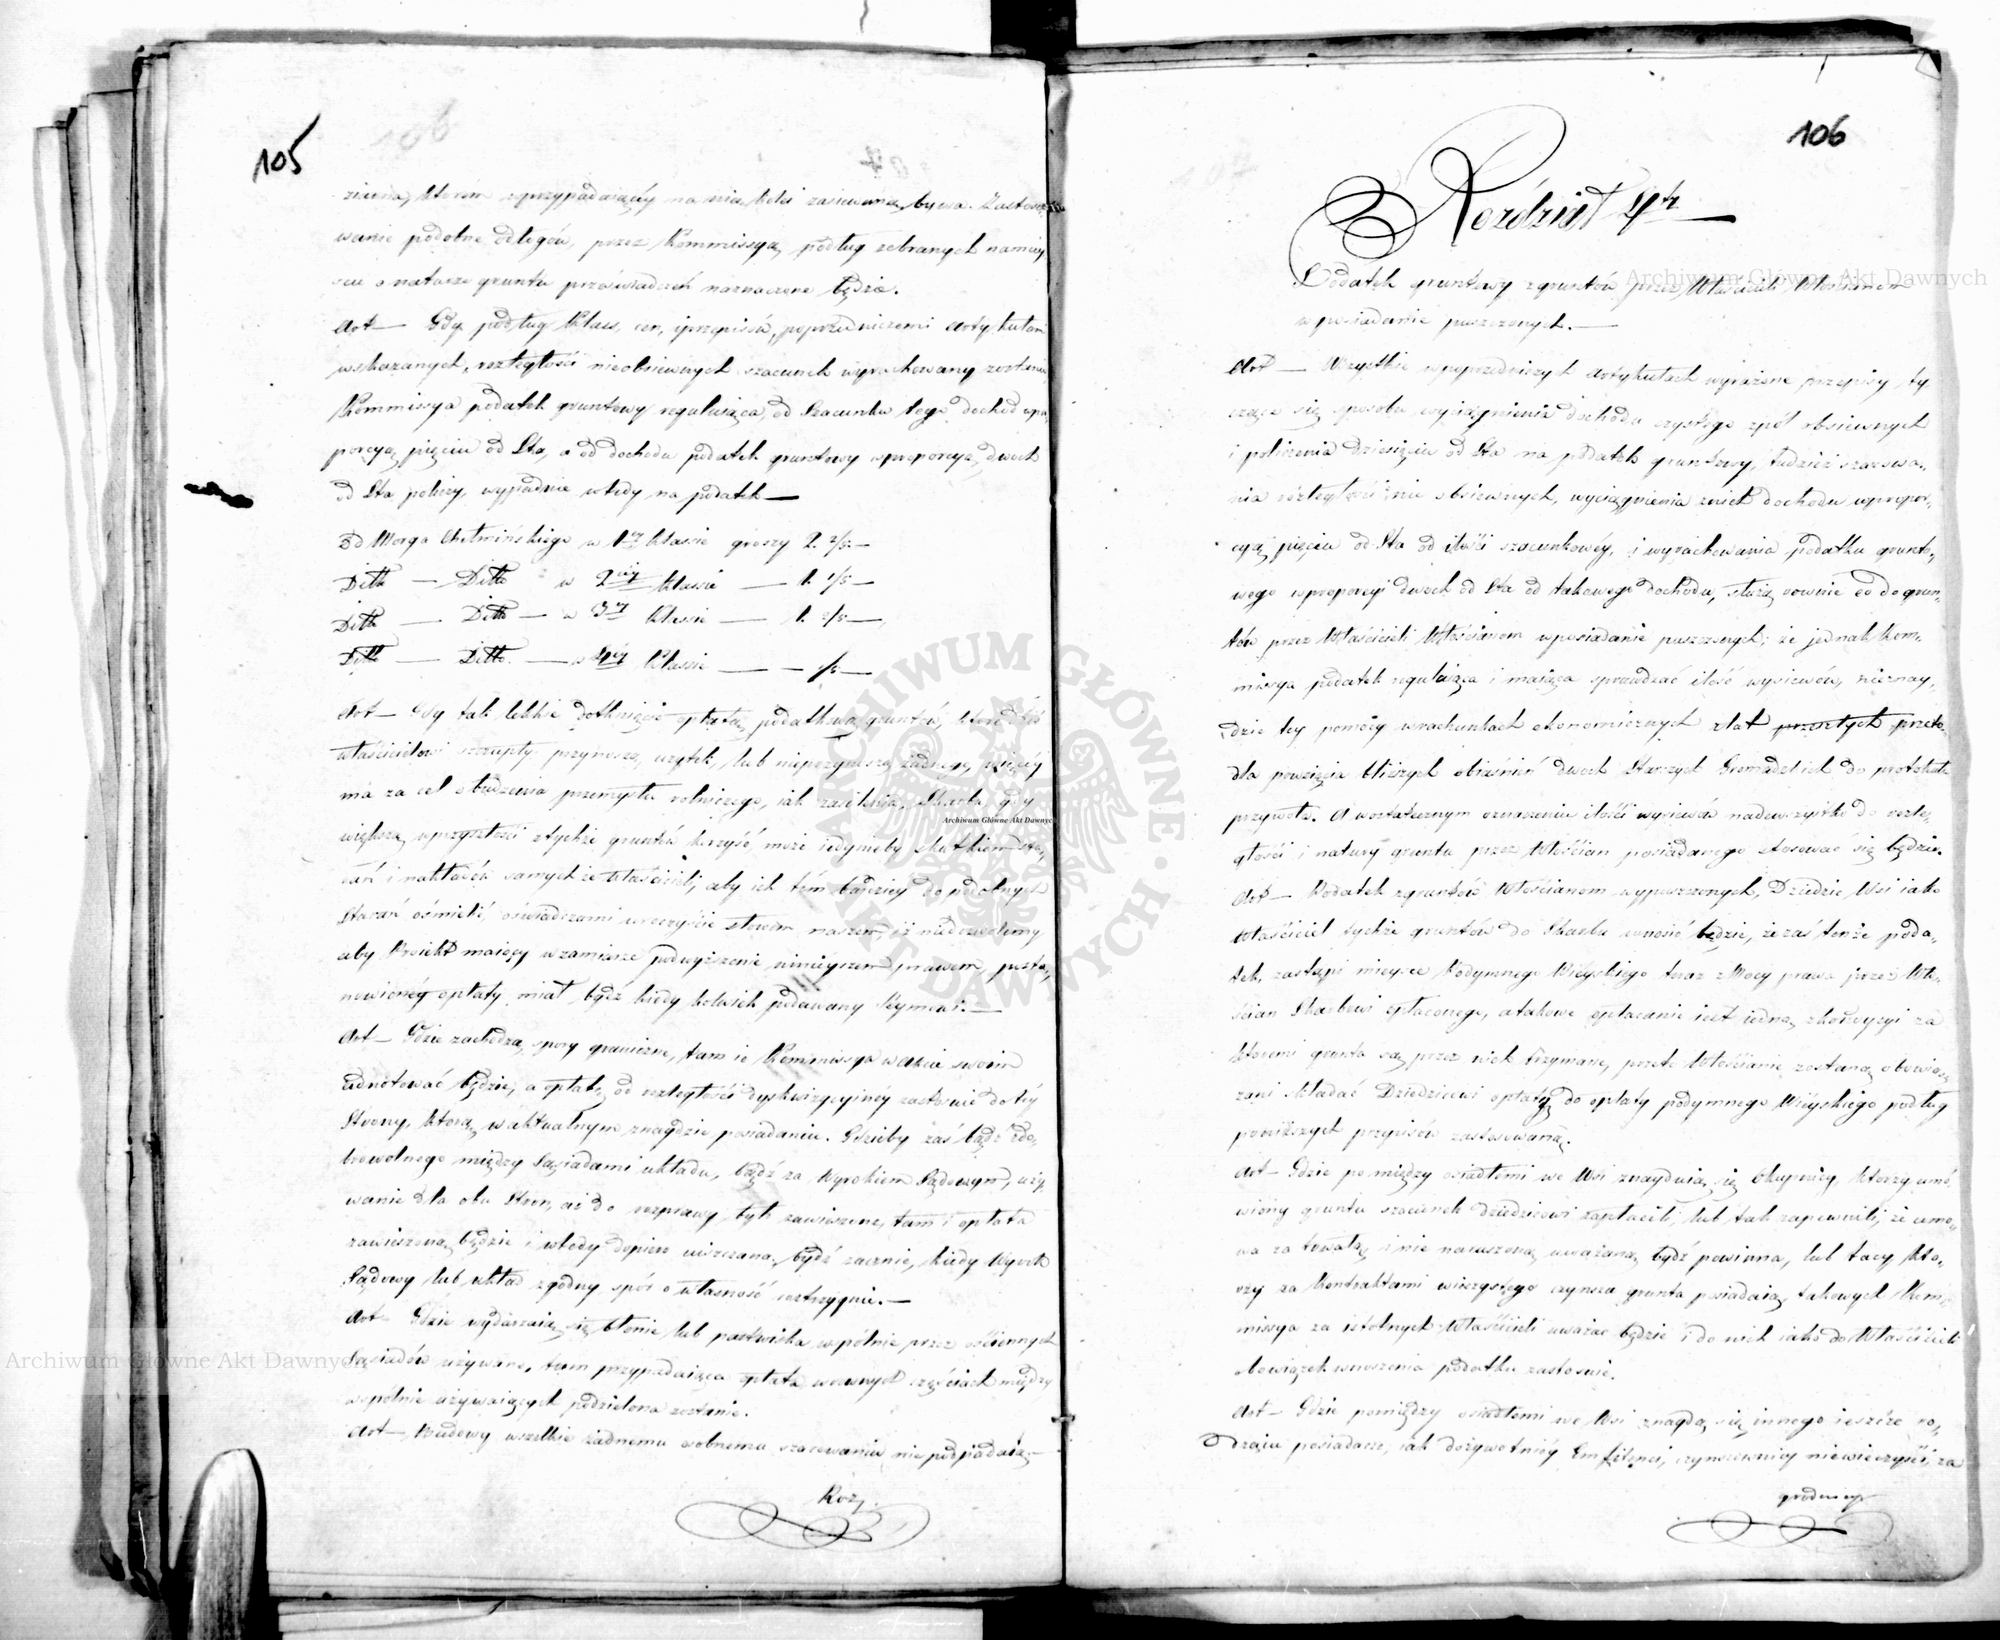 105
która w przypadaiącey na nią kolei zasiewaną bywa. Zastoso-
wanie podobne odłogów, przez Kommissyą podług zebranych na miey
scu o naturze gruntu przeświadczeń naznaczone będzie.
Art — Gdy podług Klass, cen, i przepisów, poprzedniczemi Artykułami
wskazanych, rozległości nieobsiewnych szacunek wyrachowany zostanie
Kommissya podatek gruntowy reguluiąca, od Szacunku tego dochód w pro
porcyą pięciu od Sta, a od dochodu podatek gruntowy w proporcyą dwóch
od Sta policzy, wypadnie wtedy na podatek —
Od Morga Chełmińskiego w 1ey Klassie groszy 2. 2/5 —
Ditto — Ditto w 2iey Klassie — 1. 1/5 —
Ditto — Ditto — w 3ey Klassie —
Ditto — Ditto — w 4ey Klassie —
Art — Gdy tak lekkie dotknięcie opłatą podatkową gruntów, które dziś
właścicielowi szczupły przynoszą użytek, lub nieprzynoszą żadnego, więcey
ma za cel obudzenia przemysłu rolniczego, iak zasilenia Skarbu, gdy
większa w przyszłości z tychże gruntów korzyść może iedynieby skutkiem sta-
rań i nakładów samychże Właścicieli, aby ich tym bardziey do podobnych
Starań ośmielić, oświadczamy uroczyście słowem naszem, iż niedozwolemy
aby Proiekt maiący w zamiarze podwyższenie ninieyszem prawem posta-
nowioney opłaty miał bydź kiedy kolwiek podawany Seymowi. —
Art — Gdzie zachodzą spory graniczne, tam ie Kommissya w akcie swoim
adnotować będzie, a opłatę od rozległości dyskwizycyiney zastosuie do tey
Strony, która w aktualnym znaydzie posiadaniu. Gdzieby zaś bądź z do-
browolnego między Sąsiadami układu, bądź za Wyrokiem Sądowym, uży-
wanie dla obu Stron, aż do rozprawy było zawieszone, tam i opłata
zawieszoną będzie i wtedy dopiero uiszczana bydź zacznie, kiedy Wyrok
Sądowy lub układ zgodny spór o własność rozstrzygnie. —
Art — Gdzie wydarzaią się błonie lub pastwiska wspólnie przez ościennych
Sąsiadów używane, tam przypadaiąca opłata w równych częściach między
wspólnie używaiących podzielona zostanie.
Art — Budowy wszelkie żadnemu osobnemu szacowaniu nie podpadaią —
Roz.
106
Rozdział 4ty —
Podatek gruntowy z gruntów przez Właścicieli Włościanom
w posiadanie puszczonych. —
Art — Wszystkie w poprzedniczych Artykułach wyrażone przepisy ty
czące się sposobu wyciągnienia dochodu czystego z pól obsiewnych
i policzenia dziesięciu od Sta na podatek gruntowy, tudzież szacowa-
nia rozległości nie obsiewnych, wyciągnienia z nich dochodu w propor-
cyą pięciu od Sta od ilości szacunkowey, i wyrachowania podatku grunto-
wego w proporcyi dwóch od Sta od takowego dochodu, służą równie co do grun-
tów przez Właścicieli Włościanom w posiadanie puszczonych; że jednak Kom-
missya podatek reguluiąca i maiąca sprawdzać ilość wysiewów, nieznay-
dzie tey pomocy w rachunkach ekonomicznych z lat przeszłych przeto
dla powzięcia bliższych obiaśnień dwóch Starszych Gromadzkich do protokułu
przywoła. A w ostatecznym oznaczeniu ilości wysiewów nadewszystko do rozle-
głości i natury gruntu przez Włościan posiadanego stosować się będzie.
Art — Podatek z gruntów Włościanom wypuszczonych, Dziedzic Wsi iako
Właściciel tychże gruntów do Skarbu wnosić będzie, że zaś tenże poda-
tek zastąpi mieysce Podymnego Wieyskiego teraz z Mocy prawa przez Wło-
ścian Skarbowi opłaconego, a takowe opłacanie iest iedną z kondycyi za
któremi grunta są przez nich trzymane, przeto Włościanie zostaną obowią-
zani składać Dziedzicowi opłatę do opłaty podymnego Wieyskiego podług
poniższych przepisów zastosowaną.
Art — Gdzie pomiędzy osiadłemi we Wsi znayduią się Okupnicy, którzy umó
wiony gruntu szacunek dziedzicowi zapłacili, lub tak zapewnili, że umo-
wa za trwałą i nie naruszoną uważaną bydź powinna, lub tacy któ-
rzy za kontraktami wieczystego czynszu grunta posiadaią, takowych Kom-
missya za istotnych Właścicieli uważać będzie i do nich iako do Właścicieli
obowiązek wnoszenia podatku zastosuie.
Art — Gdzie pomiędzy osiadłemi we Wsi znaydą się innego ieszcze ro-
dzaiu posiadacze, iak dożywotnicy Emfiteuci, czynszownicy niewieczyści, za
grodnicy
Archiwum Główne Akt Dawnych
Archiwum Główne Akt Dawnych
Archiwum Główne Akt Dawnych
ARCHIWUM GŁÓWNE AKT DAWNYCH